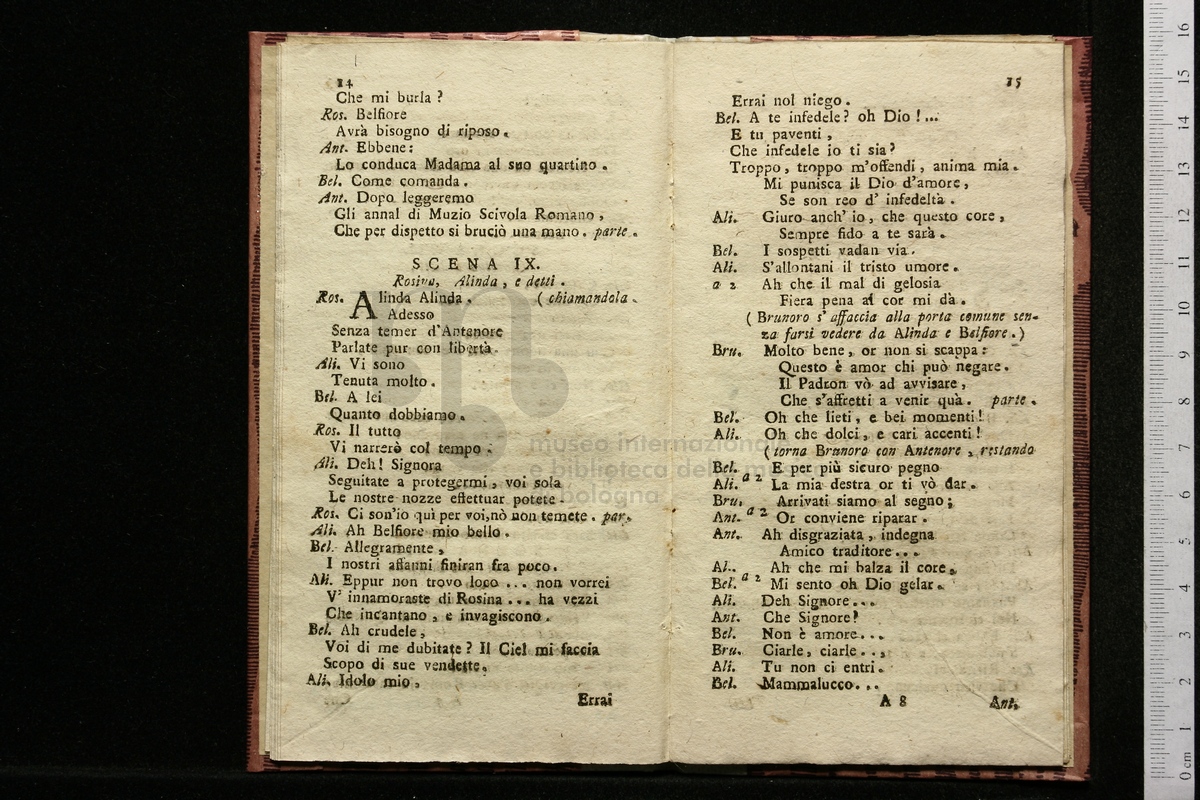 14
Che mi burla ?
Ros. Belfiore
Avrà bisogno di riposo.
Ant. Ebbene:
Lo conduca Madama al suo quartino .
Bel. Come comanda .
Ant. Dopo leggeremo
Gli annal di Muzio Scivola Romano ,
Che per dispetto si bruciò una mano . parte .
SCENA IX.
Rosina, Alinda , e detti .
Ros. Alinda Alinda . ( chiamandola .
Adesso
Senza temer d'Antenore
Parlate pur con libertà.
Ali. Vi sono
Tenuta molto .
Bel. A lei
Quanto dobbiamo .
Ros. Il tutto
Vi narrerò col tempo .
Ali. Deh! Signora
Seguitate a protegermi , voi sola
Le nostre nozze effettuar potete .
Ros. Ci son'io quì per voi,nò non temete . par.
Ali. Ah Belfiore mio bello .
Bel. Allegramente ,
I nostri affanni finiran fra poco.
Ali. Eppur non trovo loco ... non vorrei
V' innamoraste di Rosina ... ha vezzi
Che incantano , e invagiscono .
Bel. Ah crudele ,
Voi di me dubitate ? Il Ciel mi faccia
Scopo di sue vendette.
Ali. Idolo mio ,
Errai
15
Errai nol niego .
Bel. A te infedele ? oh Dio ! ...
E tu paventi ,
Che infedele io ti sia ?
Troppo , troppo m'offendi , anima mia .
Mi punisca il Dio d'amore ,
Se son reo d' infedeltà .
Ali. Giuro anch' io , che questo core ,
Sempre fido a te sarà .
Bel. I sospetti vadan via .
Ali. S'allontani il tristo umore .
a 2 Ah che il mal di gelosia
Fiera pena al cor mi dà .
( Brunoro s' affaccia alla porta comune sen-
za farsi vedere da Alinda e Belfiore . )
Bru. Molto bene , or non si scappa :
Questo è amor chi può negare .
Il Padron vò ad avvisare ,
Che s'affretti a venir quà . parte .
Bel. Oh che lieti , e bei momenti !
Ali. Oh che dolci , e cari accenti !
( torna Brunoro con Antenore , restando
Bel. E per più sicuro pegno
Ali. a 2 La mia destra or ti vò dar .
Bru. Arrivati siamo al segno ;
Ant. a 2 Or conviene riparar .
Ant. Ah disgraziata , indegna
Amico traditore ...
Al.. Ah che mi balza il core ,
Bel. a 2 Mi sento oh Dio gelar .
Ali. Deh Signore ...
Ant. Che Signore ?
Bel. Non è amore ...
Bru. Ciarle , ciarle ...
Ali. Tu non ci entri .
Bel. Mammalucco ...
A 8
Ant.
museo internazionale
e biblioteca della mu
bologna